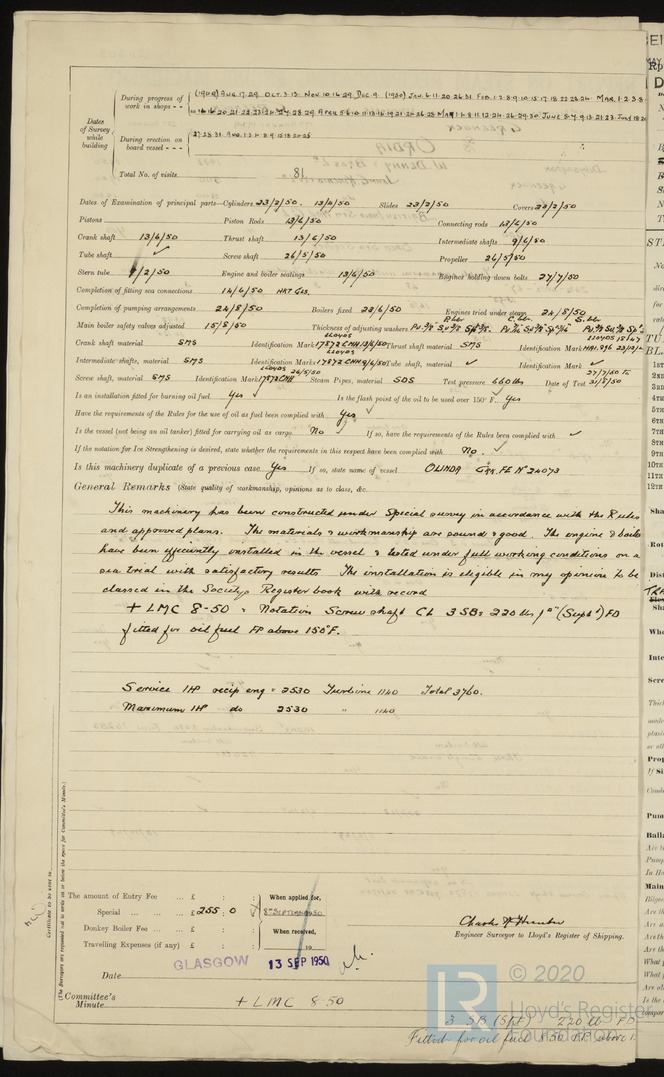 Dates of Survey while building
During progress of work in shops - - (1949) AUG 17. 29. OCT. 3. 13. NOV 10. 16. 29. DEC. 9. (1950) JAN. 6. 11. 20. 26. 31 FEB. 1. 2. 8. 9. 10. 15. 17. 18. 22. 23. 24. MAR. 1. 2. 3. 8.
20. 21. 22. 23. 24. 28. 29 APRIL 5. 6. 10. 11. 13. 18. 19. 21. 24. 26. 28 MAY 1. 8. 11. 12. 24. 26. 29. 30 JUNE 5. 7. 9. 13. 21. 23. JULY 18. 20
During erection on board vessel - - - 27. 28. 31. AUG. 1. 2. 4. 8. 9. 15. 18. 20. 25
Total No. of visits 81
Dates of Examination of principal parts—Cylinders 23/2/50. 13/4/50 Slides 23/2/50 Covers 23/2/50
Pistons Piston Rods 13/6/50 Connecting rods 13/6/50
Crank shaft 13/6/50 Thrust shaft 13/6/50 Intermediate shafts 9/6/50
Tube shaft ✓ Screw shaft 26/5/50 Propeller 26/5/50
Stern tube 9/2/50 Engine and boiler seatings 13/6/50 Engines holding down bolts 27/7/50
Completion of fitting sea connections 14/6/50 HRT Gls.
Completion of pumping arrangements 24/8/50 Boilers fixed 28/6/50 Engines tried under steam 24/8/50
Main boiler safety valves adjusted 15/8/50 Thickness of adjusting washers P. blr C. blr. S. blr
Crank shaft material SMS Identification Mark LLOYDS 17872 CHH 13/6/50 Thrust shaft material SMS Identification Mark LLOYDS 18647 HAI. 896 23/12/4
Intermediate shafts, material SMS Identification Marks LLOYDS 17872 CHH 9/6/50 Tube shaft, material ✓ Identification Mark ✓
Screw shaft, material SMS Identification Mark LLOYDS 26/5/50 17872 CHH Steam Pipes, material SDS Test pressure 660 lbs Date of Test 27/7/50 To 21/8/50
Is an installation fitted for burning oil fuel Yes Is the flash point of the oil to be used over 150°F. Yes
Have the requirements of the Rules for the use of oil as fuel been complied with Yes
Is the vessel (not being an oil tanker) fitted for carrying oil as cargo No If so, have the requirements of the Rules been complied with ✓
If the notation for Ice Strengthening is desired, state whether the requirements in this respect have been complied with No.
Is this machinery duplicate of a previous case Yes If so, state name of vessel OLINDA GRK. FE No 24073
General Remarks (State quality of workmanship, opinions as to class, &c.
This machinery has been constructed under Special survey in accordance with the Rules
and approved plans. The materials & workmanship are sound & good. The engine & boilers
have been efficiently installed in the vessel & tested under full working conditions on a
sea trial with satisfactory results. The installation is eligible in my opinion to be
classed in the Society's Register book with record
+ LMC 8-50 & Notation Screw shaft CL 3 SBs 220 lbs (Supt) FD
fitted for oil fuel FP above 150°F.
Service IHP recip eng = 2530 Turbine 1140 Total 3760.
Maximum IHP do 2530 " 1140
The amount of Entry Fee ... £ : :
Special ... ... £ 255 : 0 :
Donkey Boiler Fee ... £ : :
Travelling Expenses (if any) £ : :
When applied for,
8th SEPTEMBER 1950
When received,
19
Charles H. Hunter
Engineer Surveyor to Lloyd's Register of Shipping.
GLASGOW 13 SEP 1950
Date
Committee's Minute + LMC 8-50
3 SB (Spt) 220 lb FD
Fitted for oil fuel 8.50 F.P. above 1
Certificate to be sent to
(The Surveyors are requested not to write on or below the space for Committee's Minute.)
LR © 2020
Lloyd's Register
Foundation